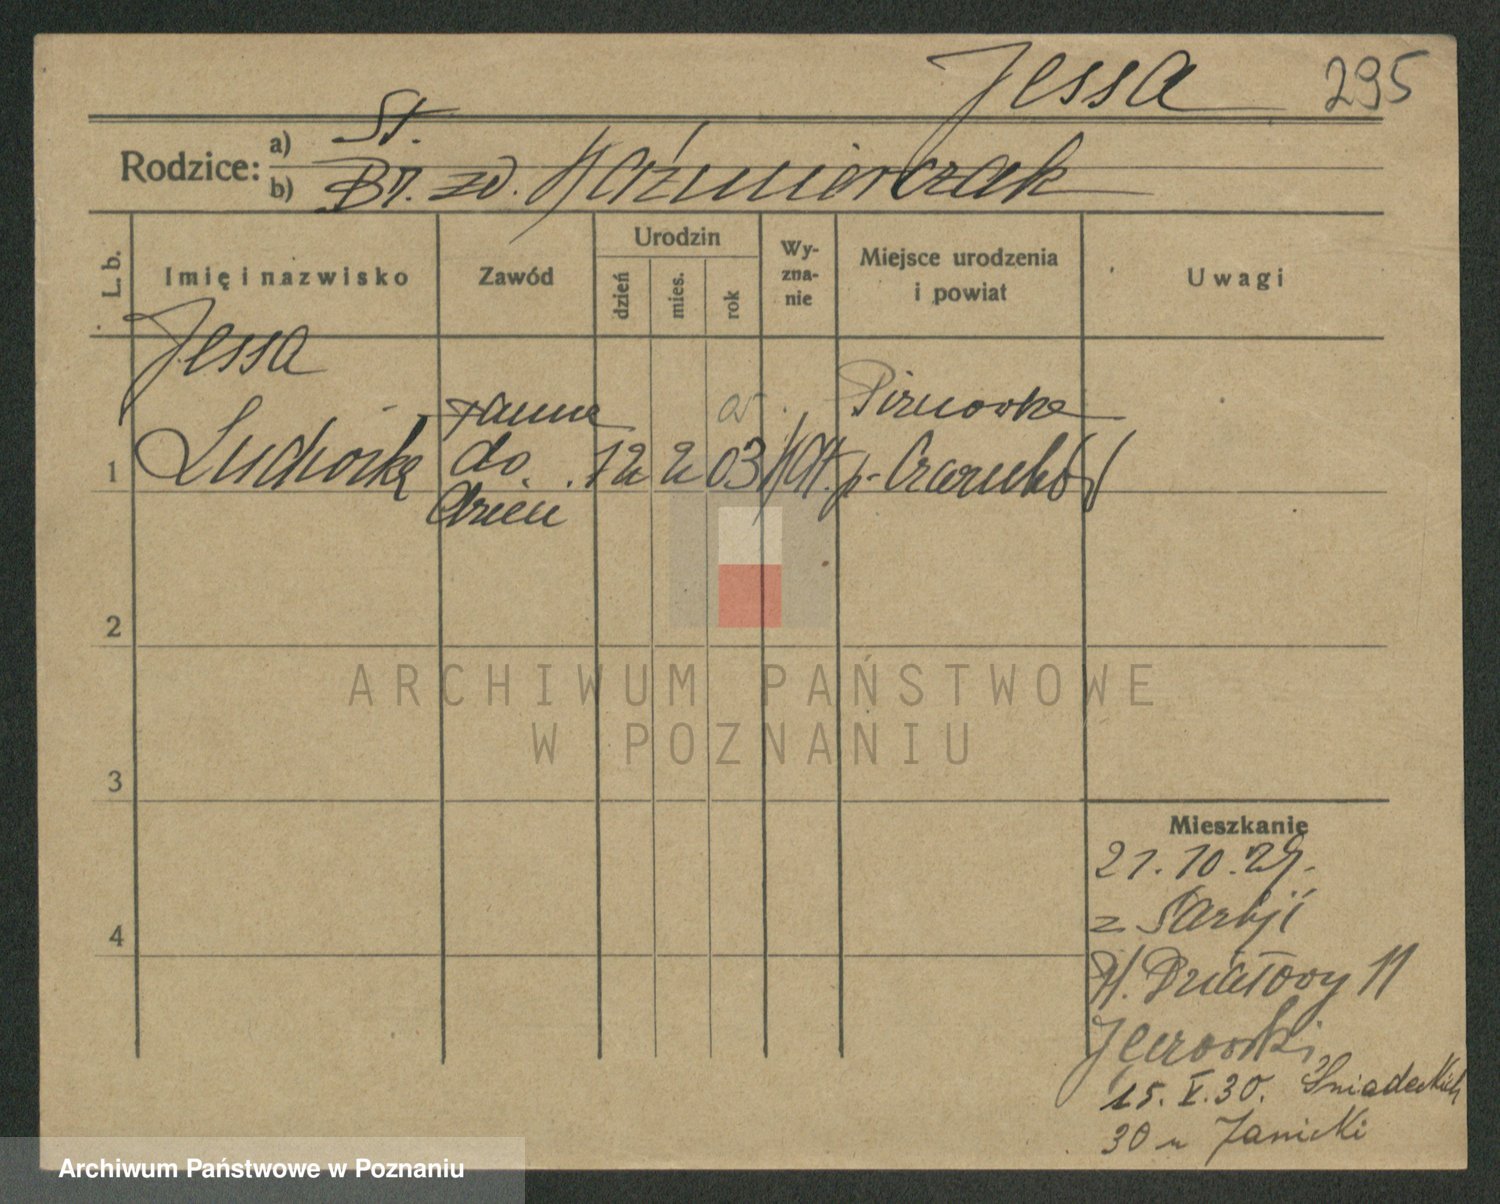 Jessa 295
Rodzice:
a) St.
b) Br. zd. Kaźmierczak
L. b.
Imię i nazwisko
Zawód
Urodzin
dzień
mies.
rok
Wy-
zna-
nie
Miejsce urodzenia
i powiat
Uwagi
Jessa
panna Pirnowke
1 Ludwika do 12 2 03 kat. p. Czarnków
dzieci
2
ARCHIWUM PAŃSTWOWE
W POZNANIU
3
Mieszkanie
21.10.29.
z Sarbji
4
W. Działowy 11
15. V. 30. Śniadeckich
30 u Janicki
Archiwum Państwowe w Poznaniu